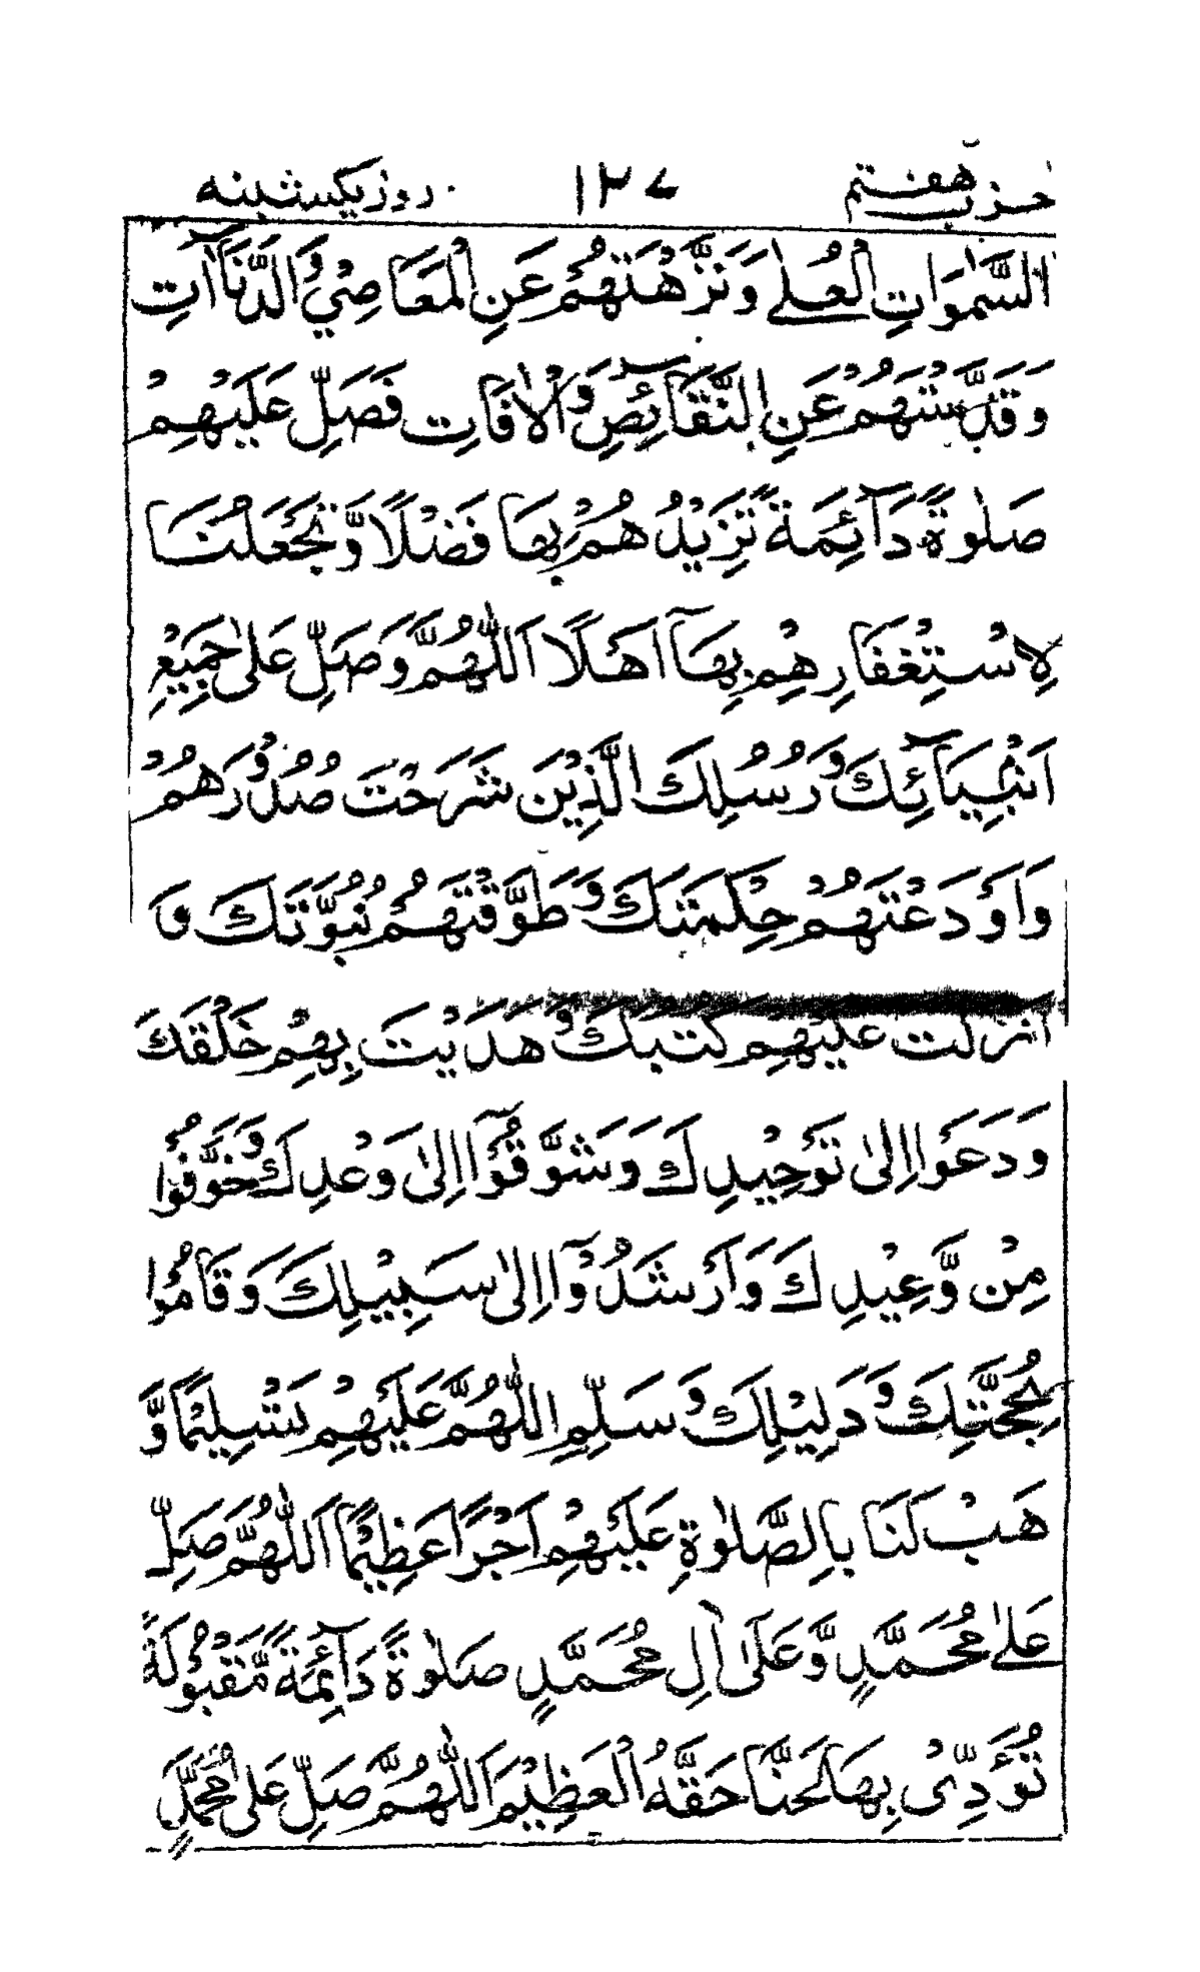 حزب هفتم ١٢٧ روز یکشنبه
السَّمٰوَاتِ الْعُلٰى وَنَزَّهْتَهُمْ عَنِ الْمَعَاصِيْ وَالدَّنَآاٰتِ
وَقَدَّسْتَهُمْ عَنِ النَّقَآئِصِ وَالْاٰفَاتِ فَصَلِّ عَلَيْهِمْ
صَلٰوةً دَآئِمَةً تَزِيْدُهُمْ بِهَا فَضْلًا وَّتَجْعَلُنَا
لِاسْتِغْفَارِهِمْ بِهَآ اَهْلًا اَللّٰهُمَّ وَصَلِّ عَلٰى جَمِيْعِ
اَنْبِيَآئِكَ وَرُسُلِكَ الَّذِيْنَ شَرَحْتَ صُدُوْرَهُمْ
وَاَوْدَعْتَهُمْ حِكْمَتَكَ وَطَوَّقْتَهُمْ نُبُوَّتَكَ وَ
اَنْزَلْتَ عَلَيْهِمْ كُتُبَكَ وَهَدَيْتَ بِهِمْ خَلْقَكَ
وَدَعَوْا اِلٰى تَوْحِيْدِكَ وَشَوَّقُوْآ اِلٰى وَعْدِكَ وَخَوَّفُوْا
مِنْ وَّعِيْدِكَ وَاَرْشَدُوْآ اِلٰى سَبِيْلِكَ وَقَامُوْا
بِحُجَّتِكَ وَدَلِيْلِكَ وَسَلِّمِ اللّٰهُمَّ عَلَيْهِمْ تَسْلِيْمًا وَّ
هَبْ لَنَا بِالصَّلٰوةِ عَلَيْهِمْ اَجْرًا عَظِيْمًا اَللّٰهُمَّ صَلِّ
عَلٰى مُحَمَّدٍ وَّعَلٰٓى اٰلِ مُحَمَّدٍ صَلٰوةً دَآئِمَةً مَّقْبُوْلَةً
تُؤَدِّىْ بِهَا لَحَنَّا حَقَّهُ الْعَظِيْمَ اَللّٰهُمَّ صَلِّ عَلٰى مُحَمَّدٍ